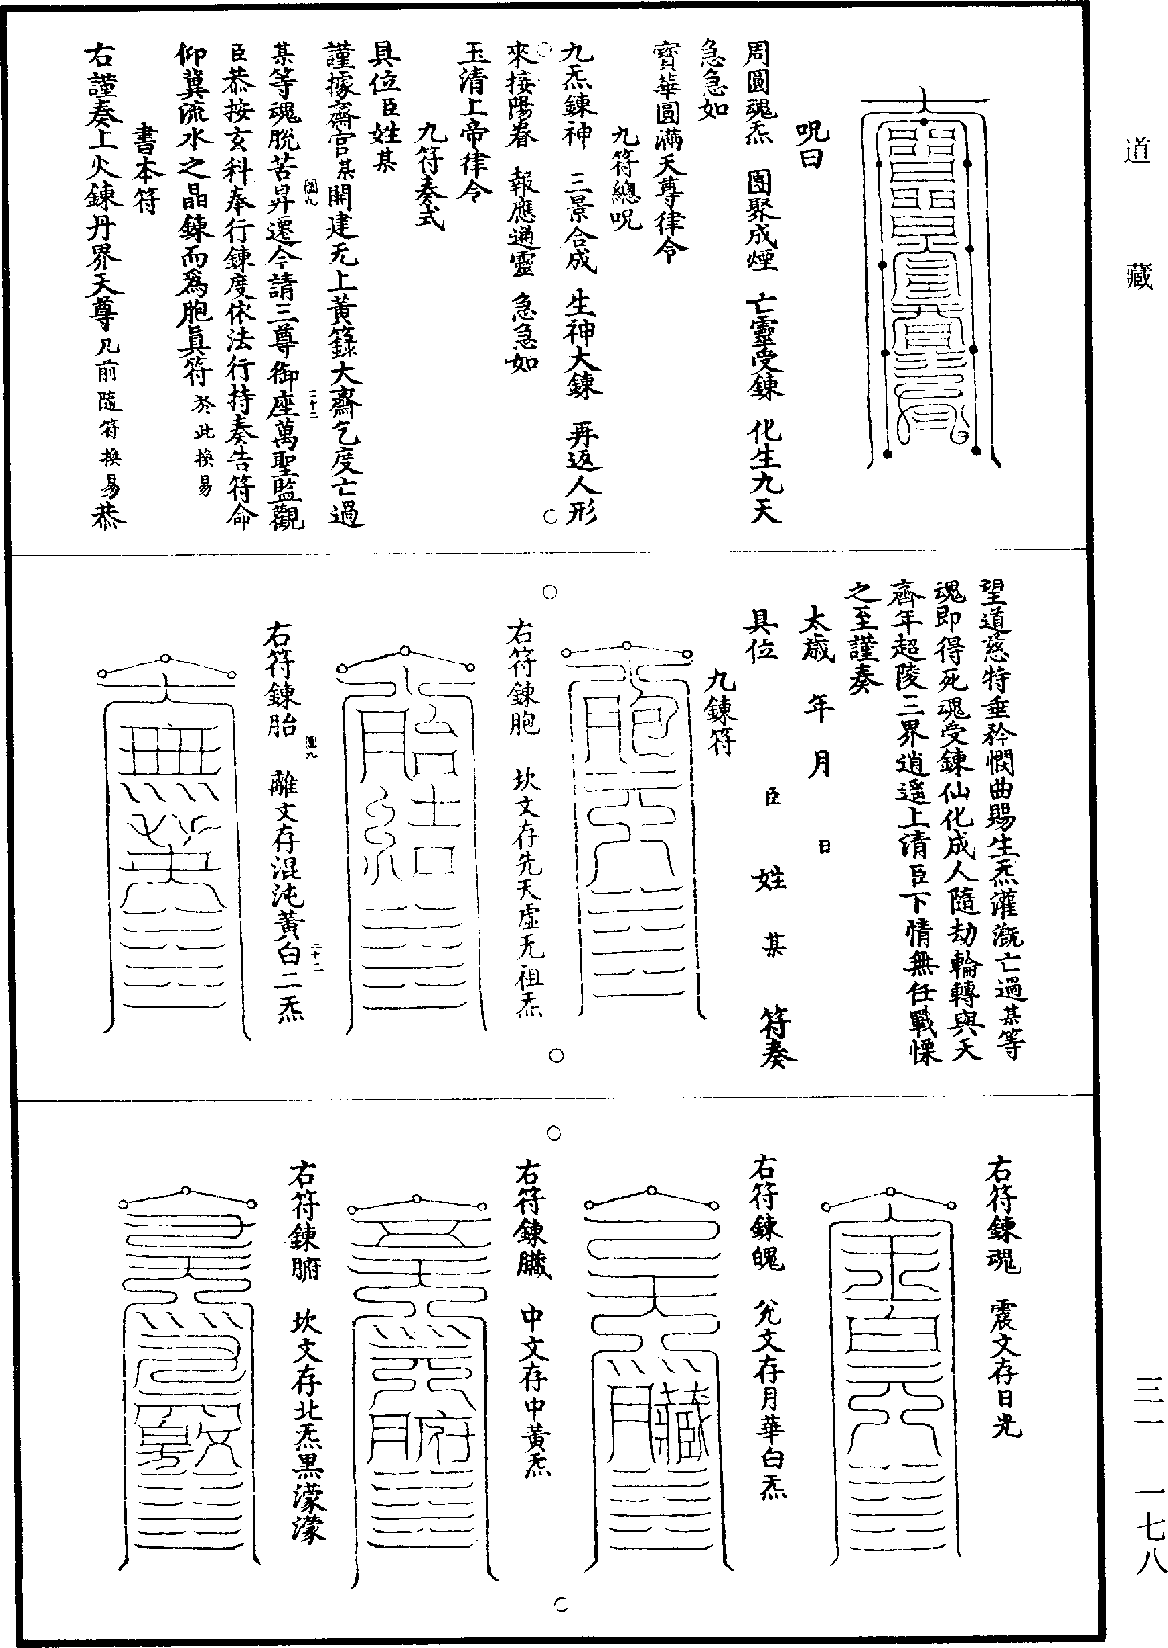 道藏
三一
一七八
呪曰
周圓魂炁　團聚成煙　亡靈受鍊　化生九天
急急如
寶華圓滿天尊律令
九符總呪
九炁鍊神　三景合成　生神大鍊　再返人形
來接陽眷　報應通靈　急急如
玉清上帝律令
九符奏式
具位臣姓某
謹據齋官某開建无上黃籙大齋乞度亡過
某等魂脫苦昇遷今請三尊御座萬聖監觀
臣恭按玄科奉行鍊度依法行持奏告符命
仰冀流水之晶鍊而爲胞眞符於此換易
書本符
右謹奏上火鍊丹界天尊凡前隨符換易恭
望道慈特垂矜憫曲賜生炁灌溉亡過某等
魂即得死魂受鍊仙化成人隨劫輪轉與天
齊年超陵三界逍遥上清臣下情無任戰慄
之至謹奏
太歲　年　月　日
具位　臣　姓　某　符奏
九鍊符
右符鍊胞　坎文存先天虛无祖炁
右符鍊胎　離文存混沌黃白二炁
右符鍊魂　震文存日光
右符鍊魄　兊文存月華白炁
右符鍊臟　中文存中黃炁
右符鍊腑　坎文存北炁黑濛濛